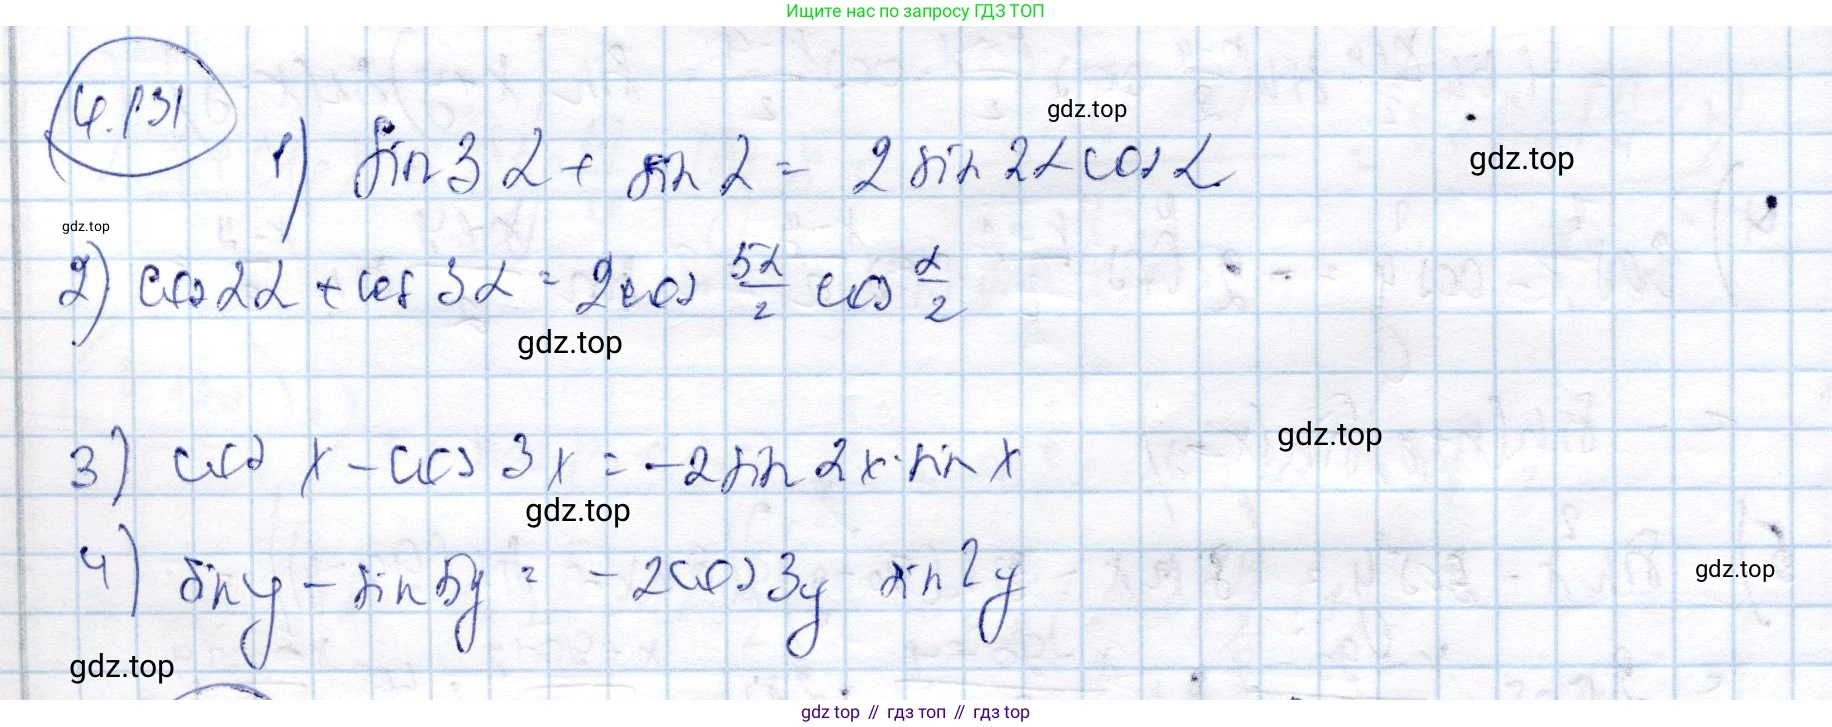 Ищите нас по запросу ГДЗ ТОП
4.131
gdz.top
1) sin 3α + sin α = 2 sin 2α cos α
gdz.top
gdz.top
2) cos 2α + cos 3α = 2 cos 5α/2 cos α/2
gdz.top
gdz.top
3) cos x - cos 3x = -2 sin 2x · sin x
gdz.top
4) sin y - sin 5y = -2 cos 3y sin 2y
gdz.top
gdz.top
gdz top // гдз топ // гдз top